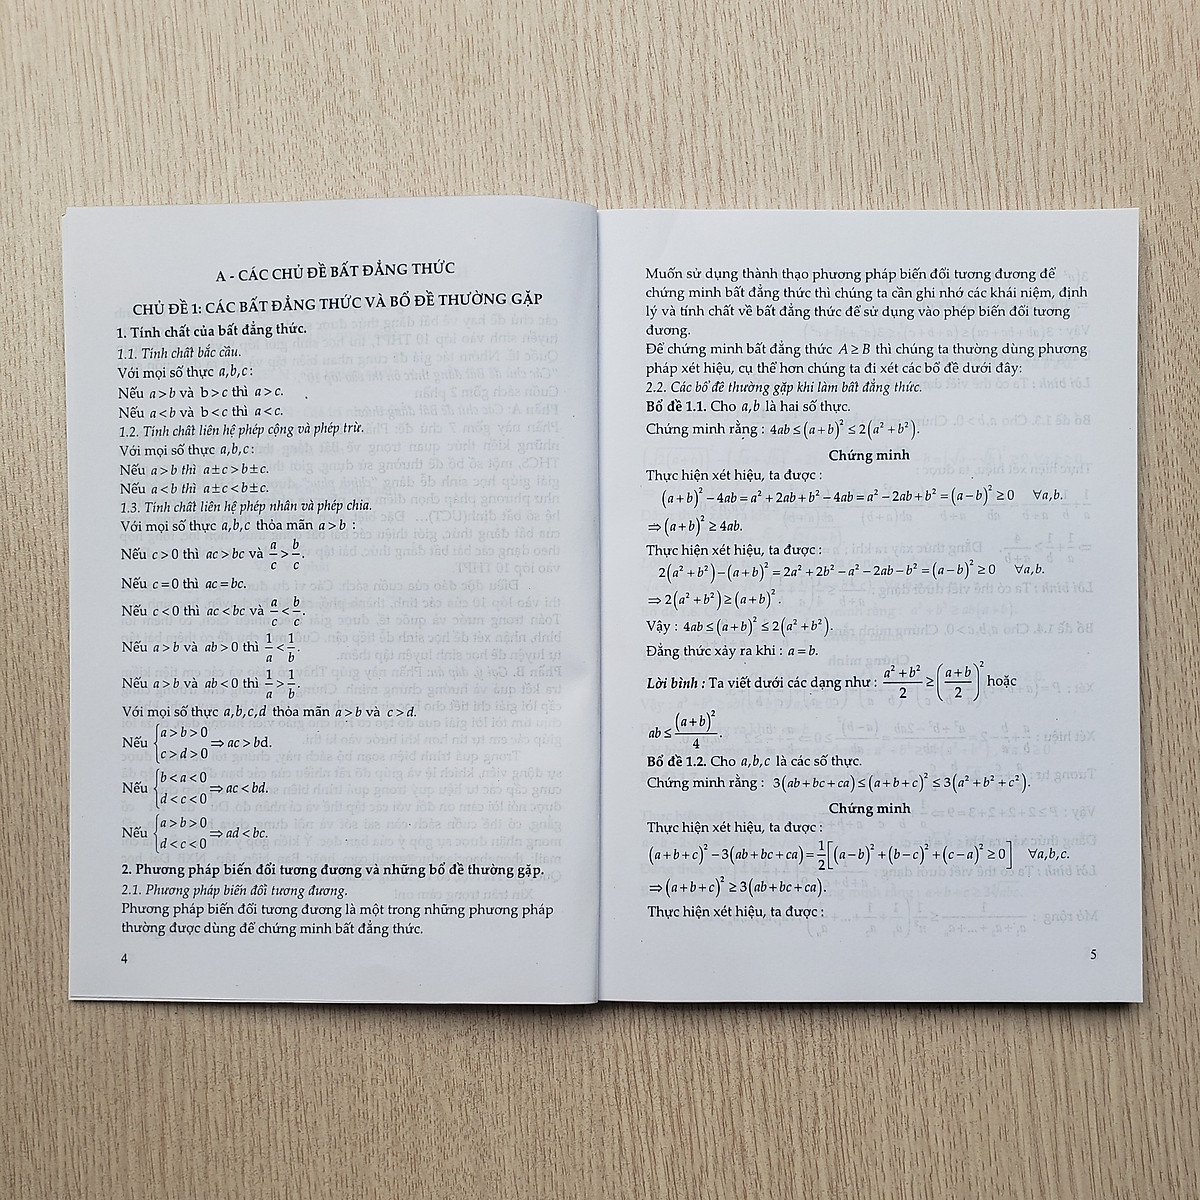 A - CÁC CHỦ ĐỀ BẤT ĐẲNG THỨC
CHỦ ĐỀ 1: CÁC BẤT ĐẲNG THỨC VÀ BỔ ĐỀ THƯỜNG GẶP
1. Tính chất của bất đẳng thức.
1.1. Tính chất bắc cầu.
Với mọi số thực a,b,c:
Nếu a > b và b > c thì a > c.
Nếu a < b và b < c thì a < c.
1.2. Tính chất liên hệ phép cộng và phép trừ.
Với mọi số thực a,b,c:
Nếu a > b thì a ± c > b ± c.
Nếu a < b thì a ± c < b ± c.
1.3. Tính chất liên hệ phép nhân và phép chia.
Với mọi số thực a,b,c thỏa mãn a > b :
Nếu c > 0 thì ac > bc và a/c > b/c.
Nếu c = 0 thì ac = bc.
Nếu c < 0 thì ac < bc và a/c < b/c.
Nếu a > b và ab > 0 thì 1/a < 1/b.
Nếu a > b và ab < 0 thì 1/a > 1/b.
Với mọi số thực a,b,c,d thỏa mãn a > b và c > d.
Nếu { a > b > 0; c > d > 0 ⇒ ac > bd.
Nếu { b < a < 0; d < c < 0 ⇒ ac < bd.
Nếu { a > b > 0; d < c < 0 ⇒ ad < bc.
2. Phương pháp biến đổi tương đương và những bổ đề thường gặp.
2.1. Phương pháp biến đổi tương đương.
Phương pháp biến đổi tương đương là một trong những phương pháp
thường được dùng để chứng minh bất đẳng thức.
4
Muốn sử dụng thành thạo phương pháp biến đổi tương đương để
chứng minh bất đẳng thức thì chúng ta cần ghi nhớ các khái niệm, định
lý và tính chất về bất đẳng thức để sử dụng vào phép biến đổi tương
đương.
Để chứng minh bất đẳng thức A ≥ B thì chúng ta thường dùng phương
pháp xét hiệu, cụ thể hơn chúng ta đi xét các bổ đề dưới đây:
2.2. Các bổ đề thường gặp khi làm bất đẳng thức.
Bổ đề 1.1. Cho a,b là hai số thực.
Chứng minh rằng : 4ab ≤ (a+b)² ≤ 2(a² + b²).
Chứng minh
Thực hiện xét hiệu, ta được :
(a+b)² − 4ab = a² + 2ab + b² − 4ab = a² − 2ab + b² = (a−b)² ≥ 0 ∀a,b.
⇒ (a+b)² ≥ 4ab.
Thực hiện xét hiệu, ta được :
2(a² + b²) − (a+b)² = 2a² + 2b² − a² − 2ab − b² = (a−b)² ≥ 0 ∀a,b.
⇒ 2(a² + b²) ≥ (a+b)².
Vậy : 4ab ≤ (a+b)² ≤ 2(a² + b²).
Đẳng thức xảy ra khi : a = b.
Lời bình : Ta viết dưới các dạng như : (a² + b²)/2 ≥ ((a+b)/2)² hoặc
ab ≤ (a+b)²/4.
Bổ đề 1.2. Cho a,b,c là các số thực.
Chứng minh rằng : 3(ab + bc + ca) ≤ (a+b+c)² ≤ 3(a² + b² + c²).
Chứng minh
Thực hiện xét hiệu, ta được :
(a+b+c)² − 3(ab + bc + ca) = 1/2[(a−b)² + (b−c)² + (c−a)² ≥ 0] ∀a,b,c.
⇒ (a+b+c)² ≥ 3(ab + bc + ca).
Thực hiện xét hiệu, ta được :
5